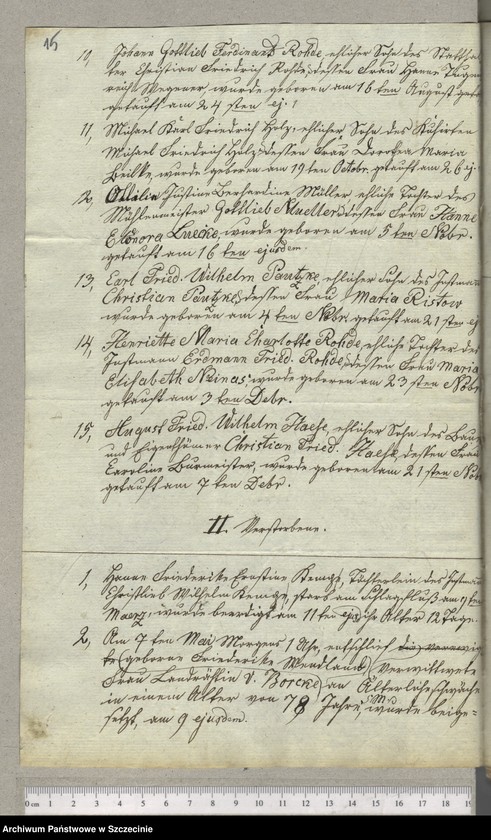 15
10, Johann Gottlieb Ferdinand Rohde, ehlicher Sohn des Statthal-
ter Christian Friedrich Rohde, dessen Frau Hanne
Wegener, wurde geboren am 16 ten August
getauft am 24 sten ej.
11, Michael Karl Friedrich Holz, ehlicher Sohn des Kuhhirten
Michael Friedrich Holz, dessen Frau Dorothea Maria
Beilke, wurde geboren am 19 ten Octobr. getauft am 26 ej.
12, Ottilie Justine Bernhardine Müller ehliche Tochter des
Mühlenmeister Gottlieb Mueller, dessen Frau Hanne
Elonora Luecke, wurde geboren am 5 ten Nobr.
getauft am 16 ten ejusdem.
13, Carl Fried. Wilhelm Pautzke, ehlicher Sohn des Instmann
Christian Pautzke, dessen Frau Maria Ristow
wurde geboren am 4 ten Nobr. getauft am 21 sten ej
14, Henriette Maria Charlotte Rohde, ehliche Tochter des
Instmann Erdmann Fried. Rohde, dessen Frau Maria
Elisabeth, wurde geboren am 23 sten Nobr
getauft am 3 ten Debr.
15, August Fried. Wilhelm Haese, ehlicher Sohn des Bauer
und Eigenthümer Christian Fried. Haese, dessen Frau
Caroline Burmeister, wurde geboren am 21 sten Nobr
getauft am 7 ten Debr.
II. Verstorbene.
1, Hanne Friederike Ernstine Kempf, Töchterlein des Instmann
Christlieb Wilhelm Kempf, starb am Schlagfluß am
Maerz, wurde beerdigt am 11 ten ejus. ihr Alter 12 Tage.
2, Am 7 ten Mai Morgens 1 Uhr, entschlief die
(geborne Friederike Wendland) verwittwete
Frau Landräthin v. Borcke, an Altersschwäche
in einem Alter von 78 Jahre, wurde beige-
setzt, am 9 ejusdem.
0 cm 1 2 3 4 5 6 7 8 9 10 11 12 13 14 15 16 17 18 19
Archiwum Państwowe w Szczecinie